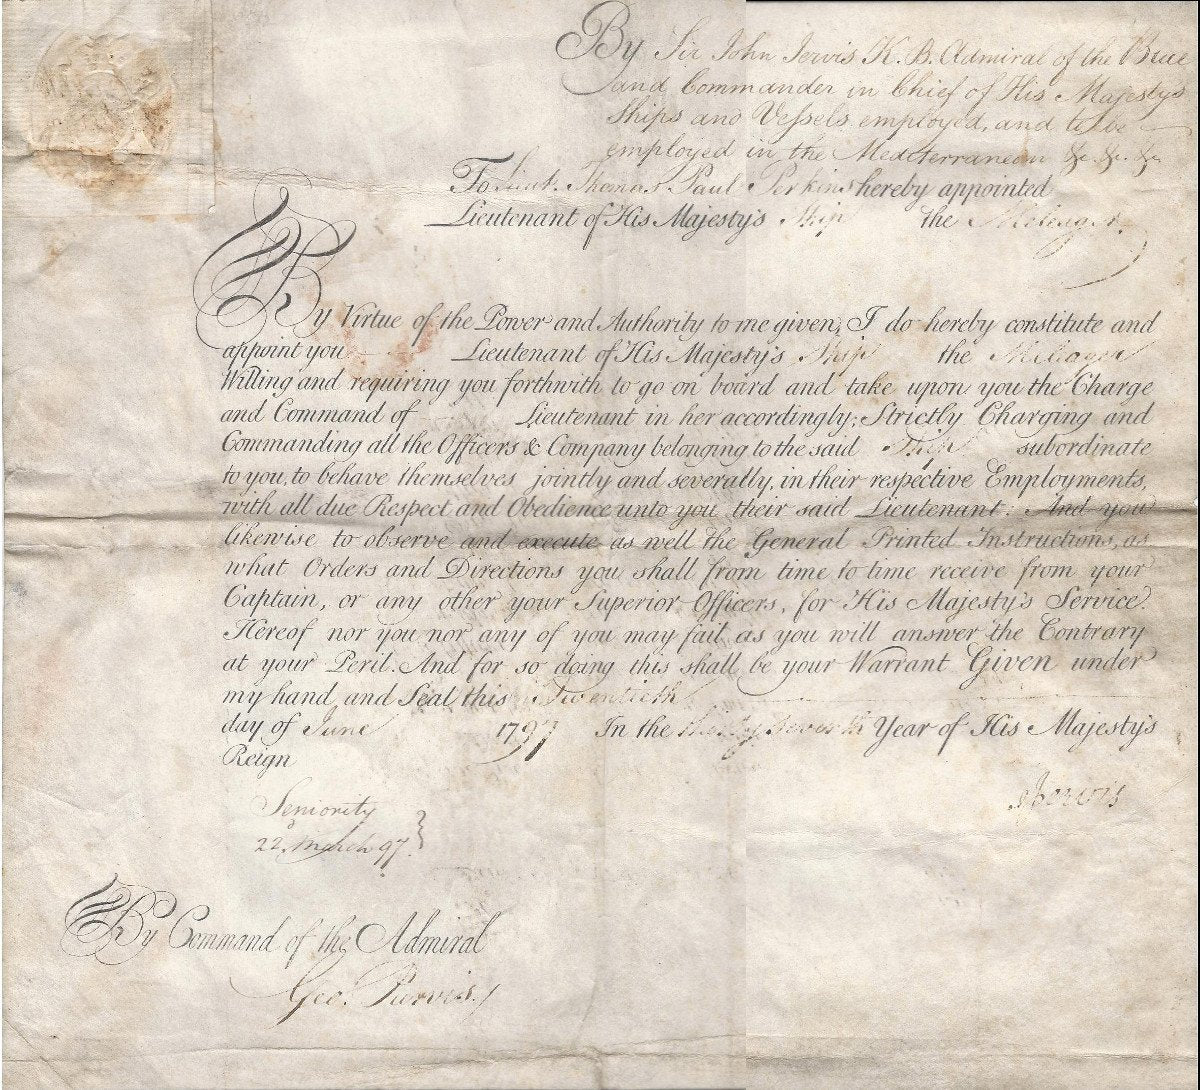 By Sir John Jervis K.B. Admiral of the Blue
and Commander in Chief of His Majesty's
Ships and Vessels employed, and to be
employed in the Mediterranean &c. &c. &c.
To Lieut. Thomas Paul Perkins hereby appointed
Lieutenant of His Majesty's Ship the Meleager.
By Virtue of the Power and Authority to me given, I do hereby constitute and
appoint you Lieutenant of His Majesty's Ship the Meleager
Willing and requiring you forthwith to go on board and take upon you the Charge
and Command of Lieutenant in her accordingly; Strictly Charging and
Commanding all the Officers & Company belonging to the said Ship subordinate
to you, to behave themselves jointly and severally, in their respective Employments,
with all due Respect and Obedience unto you their said Lieutenant; And you
likewise to observe and execute as well the General Printed Instructions, as
what Orders and Directions you shall from time to time receive from your
Captain, or any other your Superior Officers, for His Majesty's Service.
Hereof nor you nor any of you may fail as you will answer the Contrary
at your Peril. And for so doing this shall be your Warrant Given under
my hand and Seal this Twentieth
day of June 1797 In the thirty seventh Year of His Majesty's
Reign
Jervis
Seniority
22. March 97.
By Command of the Admiral
Geo. Purvis.